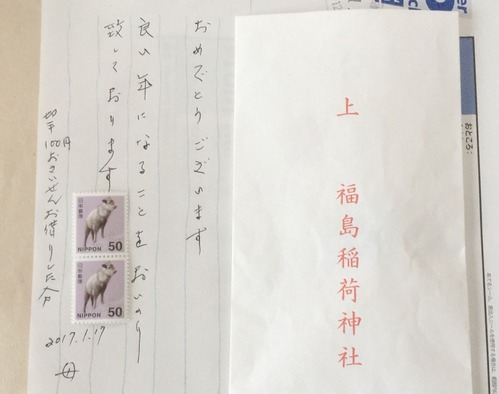 上 福島稲荷神社
おめでとうございます
良い年になることをおいのり
致しております
切手100円おさいせんお借りした分
2017.1.17
母
日本郵便
NIPPON 50
日本郵便
NIPPON 50
おところ: